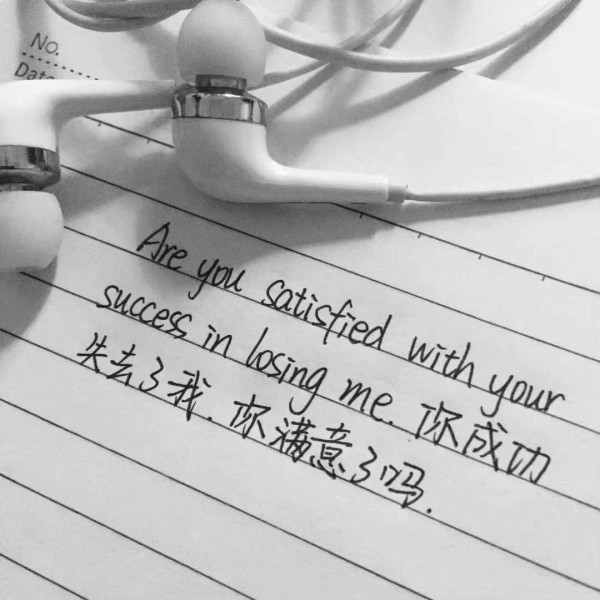 No.
Date
Are you satisfied with your
success in losing me. 你成功
失去了我. 你满意了吗.